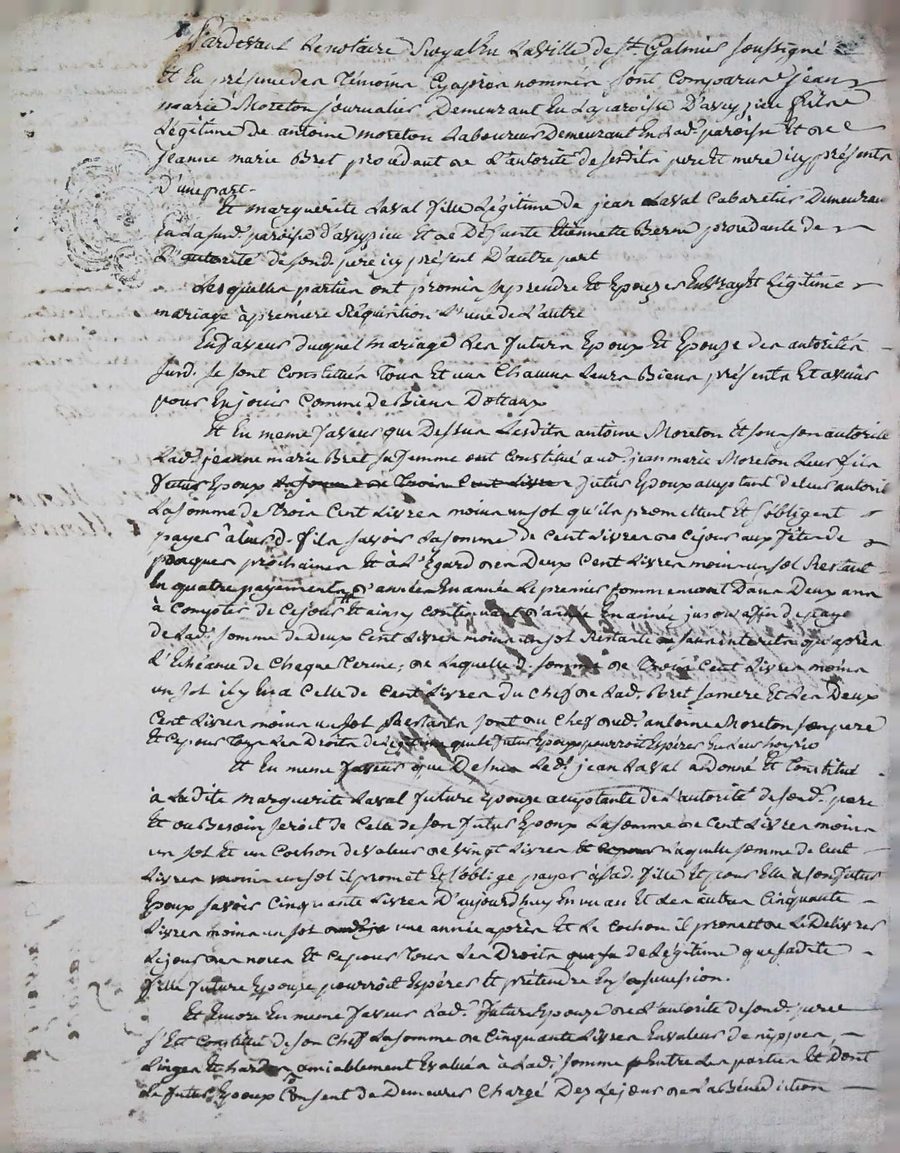 Pardevant Le notaire Royal En La Ville de St. Galmier Soussigné
Et En présence des Témoins Cyapres nommés sont Comparus Jean
marie Moreton journalier Demeurant En La paroisse D'aveyzieu fils
Légitime de antoine moreton Laboureur Demeurant En lad. paroisse Et de
Jeanne marie Bret procedant de L'autorité de sesdits pere Et mere icy présents
D'une part.
Et marguerite Laval fille Légitime de jean Laval Cabaretier Demeurant
En La susd. paroisse d'aveyzieu Et de Défunte Etiennette Berne procedante de
L'autorité de sond. pere icy présent D'autre part
Lesquelles parties ont promis se prendre Et Epouser En vray Et Légitime
mariage à première Réquisition L'une de L'autre
En faveur duquel mariage Les futurs Epoux Et Epouse des autorités
susd. se sont Constitués Tous Et uns Chacuns Leurs Biens présents Et avenir
pour En jouir Comme de Biens Dotaux
Et En meme faveur que Dessus Lesdits antoine Moreton Et sous son autorité
Lad. jeanne marie Bret sa femme ont Constitué aud. jean marie Moreton Leur fils
futur Epoux La somme de Trois Cent Livres futur Epoux acceptant de leur autorité
La somme de Trois Cent Livres moins un sol qu'ils promettent Et s'obligent
payer à leurd. fils savoir La somme de Cent Livres de Cejour aux fêtes de
paques prochaines Et à L'Egard des Deux Cent Livres moins un sol Restants
En quatre payements d'année En année Le premier Commencant Dans Deux ans
à Compter de Cejour Et ainsy continuant d'année En année jusqu'a fin de paye
de Lad. somme de Deux Cent Livres moins un sol Restante sans interets qu'après
L'Echéance de Chaque Terme; de Laquelle d. somme de Trois Cent Livres moins
un sol il y En a Celle de Cent Livres du Chef de Lad. Bret sa mere Et Les Deux
Cent Livres moins un sol Restants sont du Chef dud. antoine Moreton son pere
Et Ce pour Tous Les Droits de Légitime que le futur Epoux pourroit Espérer En Leur hoyrie
Et En meme faveur que Dessus Led. jean Laval a Donné Et Constitué
à Ladite Marguerite Laval future Epouse acceptante de L'autorité de sond. pere
Et au Besoin seroit de Celle de son futur Epoux La somme de Cent Livres moins
un sol Et un Cochon de valeur de vingt Livres Et Ce pour Laquelle somme de Cent
Livres moins un sol il promet Et s'oblige payer à sad. fille Et pour Elle à son futur
Epoux savoir Cinquante Livres D'aujourdhuy En un an Et Les autres Cinquante
Livres moins un sol une année après Et Le Cochon il promet de Le Délivrer
Le jour des noces Et Ce pour Tous Les Droits de Légitime que sadite
fille future Epouse pourroit Espérer Et prétendre En sa succession.
Et Encore En meme faveur Lad. future Epouse de L'autorité de sond. pere
s'Est Constitué de son Chef La somme de Cinquante Livres En valeur de nippes
Linges Et hardes amiablement Evalués à Lad. somme Entre Les parties Et Dont
Le futur Epoux Consent de Demeurer Chargé Dès Le jour de La Bénédiction